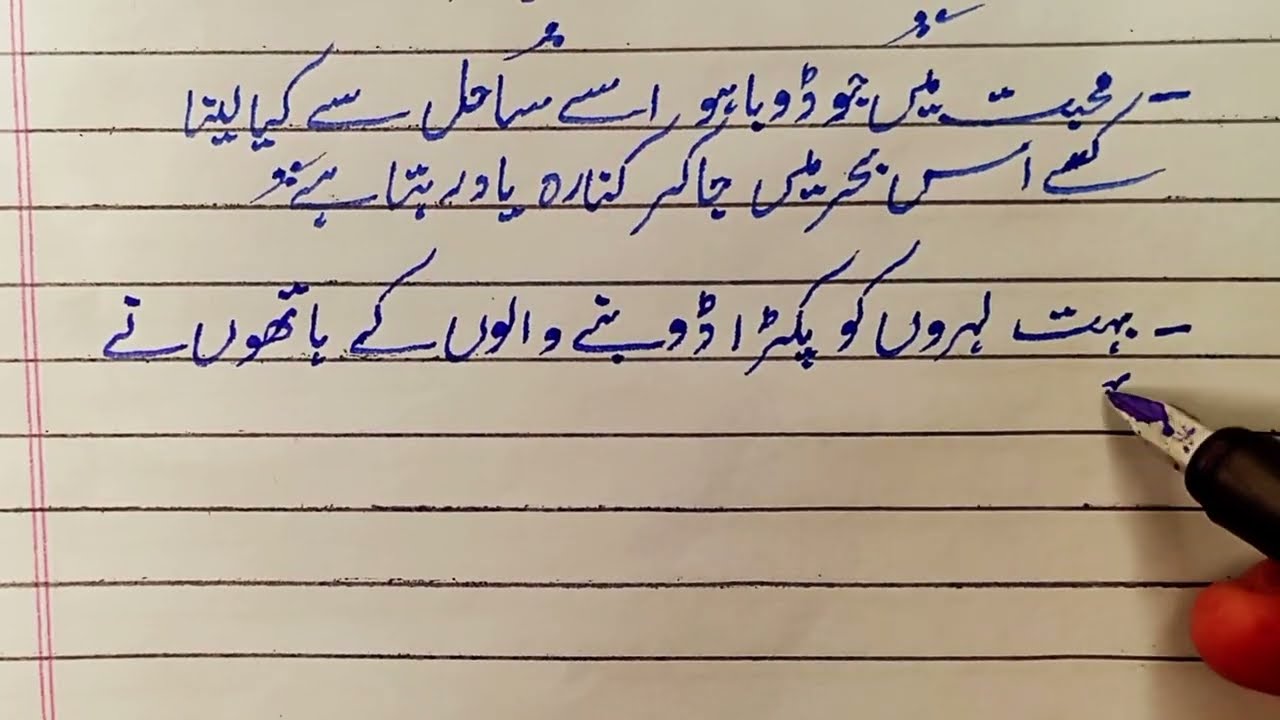 ۔ محبت میں جو ڈوبا ہو اسے ساحل سے کیا لینا
کسے اس بحر میں جا کر کنارہ یاد رہتا ہے
۔ بہت لہروں کو پکڑا ڈوبنے والوں کے ہاتھوں نے